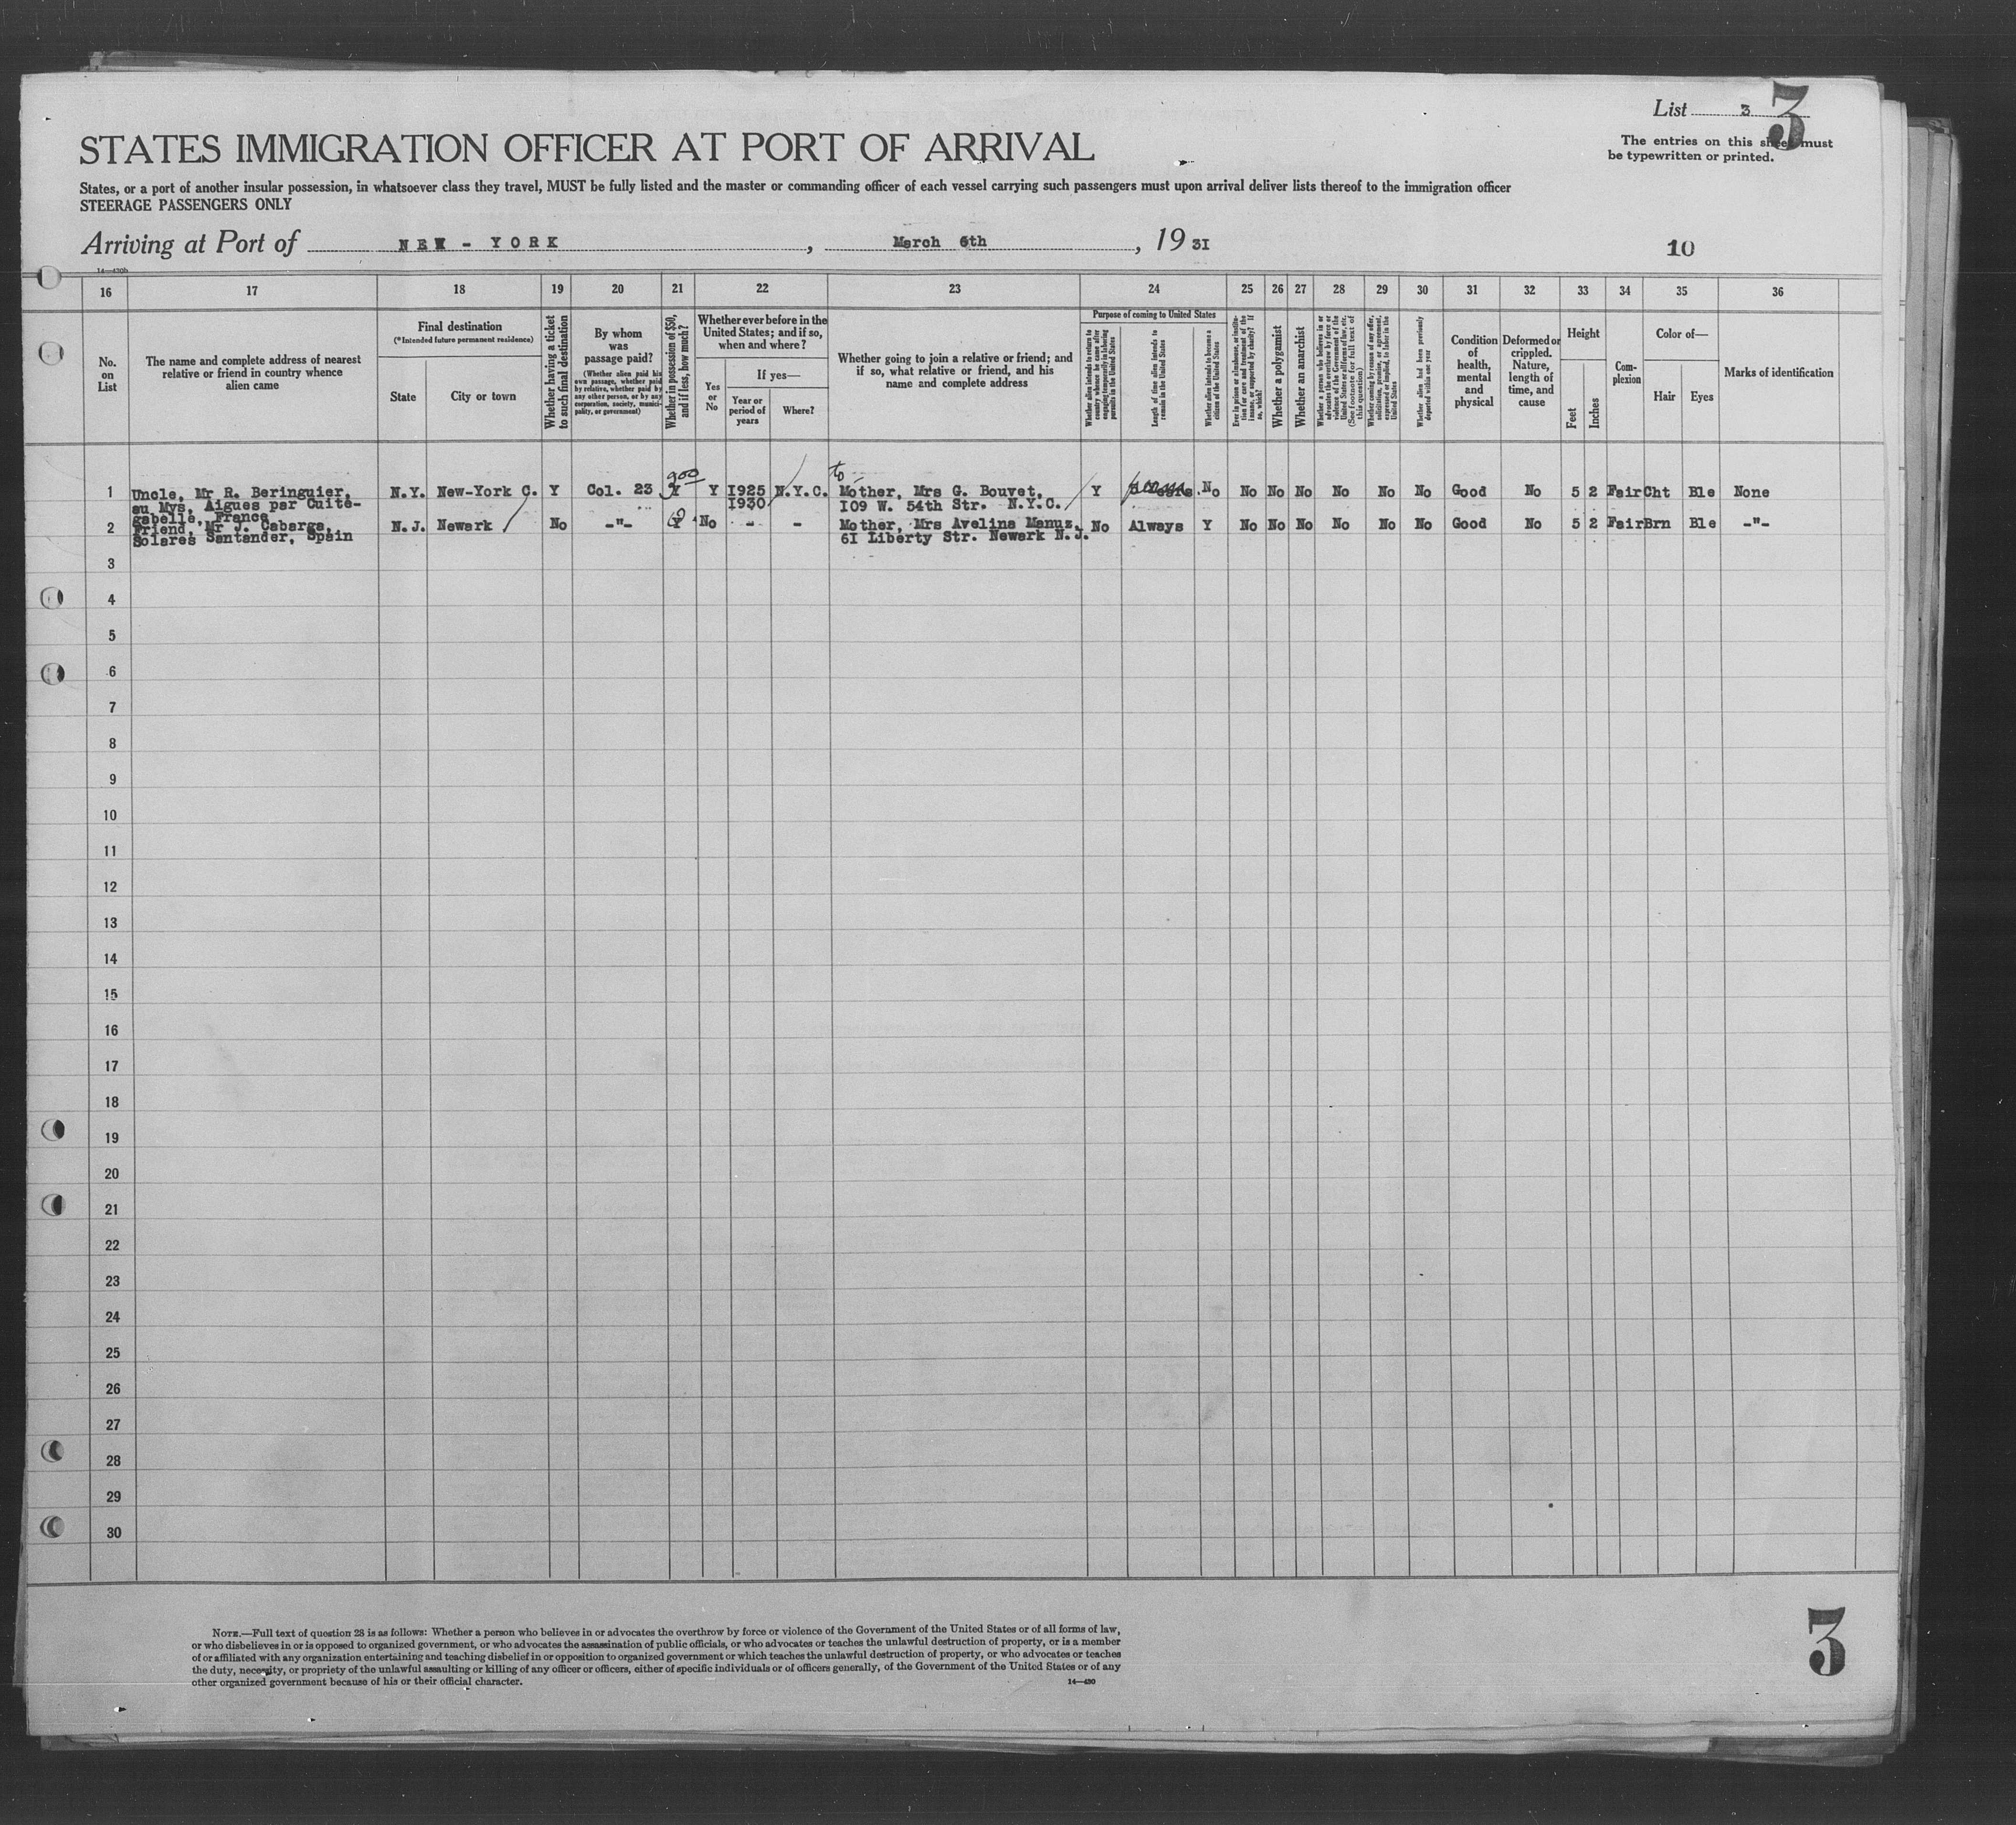 List 3
3
The entries on this sheet must
be typewritten or printed.
STATES IMMIGRATION OFFICER AT PORT OF ARRIVAL
States, or a port of another insular possession, in whatsoever class they travel, MUST be fully listed and the master or commanding officer of each vessel carrying such passengers must upon arrival deliver lists thereof to the immigration officer
STEERAGE PASSENGERS ONLY
Arriving at Port of NEW - YORK, March 6th, 19 31
10
14—430b
16 17 18 19 20 21 22 23 24 25 26 27 28 29 30 31 32 33 34 35 36
No. on List
The name and complete address of nearest
relative or friend in country whence
alien came
Final destination
(*Intended future permanent residence)
State
City or town
Whether having a ticket
to such final destination
By whom
was
passage paid?
(Whether alien paid his
own passage, whether paid
by relative, whether paid by
any other person, or by any
corporation, society, munici-
pality, or government)
Whether in possession of $50,
and if less, how much?
Whether ever before in the
United States; and if so,
when and where?
Yes
or
No
If yes—
Year or
period of
years
Where?
Whether going to join a relative or friend; and
if so, what relative or friend, and his
name and complete address
Purpose of coming to United States
Whether alien intends to return to
country whence he came after
engaging temporarily in laboring
pursuits in the United States
Length of time alien intends to
remain in the United States
Whether alien intends to become a
citizen of the United States
Ever in prison or almshouse, or institu-
tion for care and treatment of the
insane, or supported by charity? If
so, which?
Whether a polygamist
Whether an anarchist
Whether a person who believes in or
advocates the overthrow by force or
violence of the Government of the
United States or all forms of law, etc.
(See footnote for full text of
this question)
Whether coming by reason of any offer,
solicitation, promise, or agreement,
expressed or implied, to labor in the
United States
Whether alien had been previously
deported within one year
Condition
of
health,
mental
and
physical
Deformed or
crippled.
Nature,
length of
time, and
cause
Height
Feet
Inches
Com-
plexion
Color of—
Hair
Eyes
Marks of identification
900
to
1 Uncle, Mr R. Beringuier, N.Y. New-York C. Y Col. 23 Y Y 1925 N.Y.C. Mother, Mrs G. Bouvet, Y No No No No No No No Good No 5 2 Fair Cht Ble None
au Mys, Aigues par Cuite- 1930 109 W. 54th Str. N.Y.C.
gabelle, France
2 Friend, Mr J. Cabarga, N.J. Newark No -"- Y No - - Mother, Mrs Avelina Manuz, No Always Y No No No No No No Good No 5 2 Fair Brn Ble -"-
Solares Santander, Spain 61 Liberty Str. Newark N.J.
3
4
5
6
7
8
9
10
11
12
13
14
15
16
17
18
19
20
21
22
23
24
25
26
27
28
29
30
NOTE.—Full text of question 28 is as follows: Whether a person who believes in or advocates the overthrow by force or violence of the Government of the United States or of all forms of law,
or who disbelieves in or is opposed to organized government, or who advocates the assassination of public officials, or who advocates or teaches the unlawful destruction of property, or is a member
of or affiliated with any organization entertaining and teaching disbelief in or opposition to organized government or which teaches the unlawful destruction of property, or who advocates or teaches
the duty, necessity, or propriety of the unlawful assaulting or killing of any officer or officers, either of specific individuals or of officers generally, of the Government of the United States or of any
other organized government because of his or their official character.
14—430
3